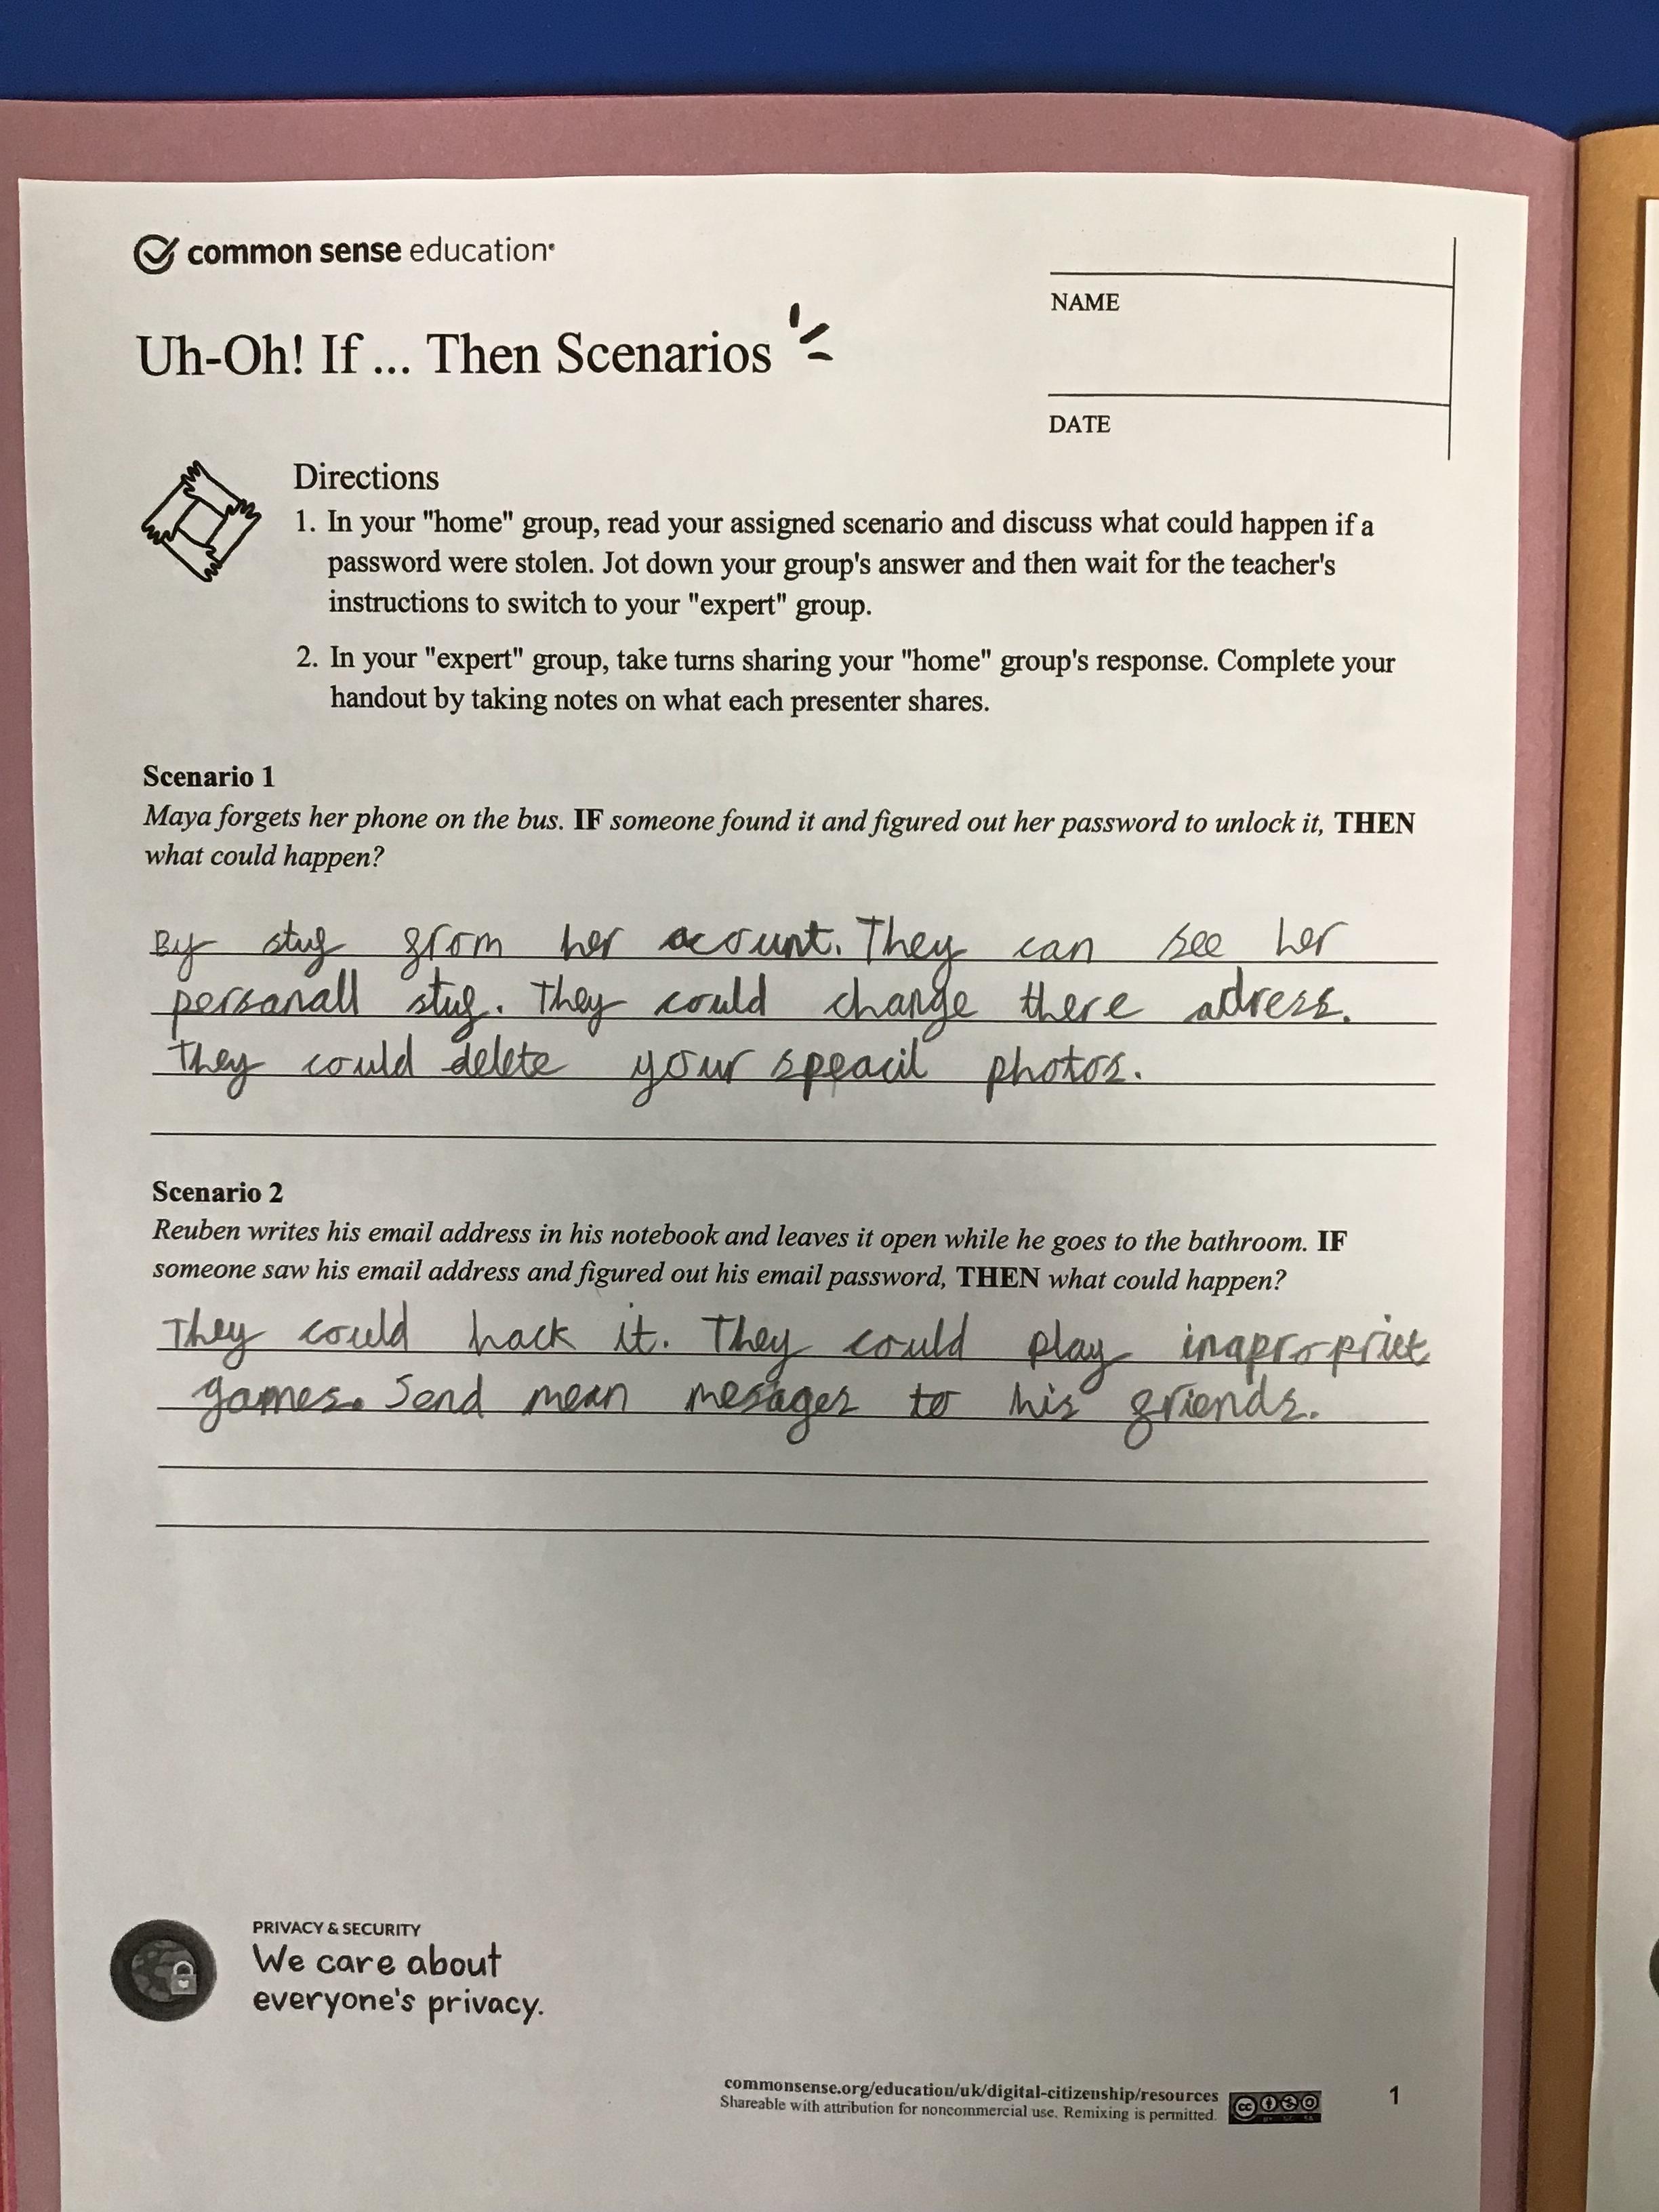 common sense education®
NAME
Uh-Oh! If ... Then Scenarios
DATE
Directions
1. In your "home" group, read your assigned scenario and discuss what could happen if a
password were stolen. Jot down your group's answer and then wait for the teacher's
instructions to switch to your "expert" group.
2. In your "expert" group, take turns sharing your "home" group's response. Complete your
handout by taking notes on what each presenter shares.
Scenario 1
Maya forgets her phone on the bus. IF someone found it and figured out her password to unlock it, THEN
what could happen?
By stuf from her acount. They can see her
personall stuf. They could change there adress.
They could delete your speacil photos.
Scenario 2
Reuben writes his email address in his notebook and leaves it open while he goes to the bathroom. IF
someone saw his email address and figured out his email password, THEN what could happen?
They could hack it. They could play inapropriet
games. Send mean mesages to his friends.
PRIVACY & SECURITY
We care about
everyone's privacy.
commonsense.org/education/uk/digital-citizenship/resources
Shareable with attribution for noncommercial use. Remixing is permitted.
cc
1